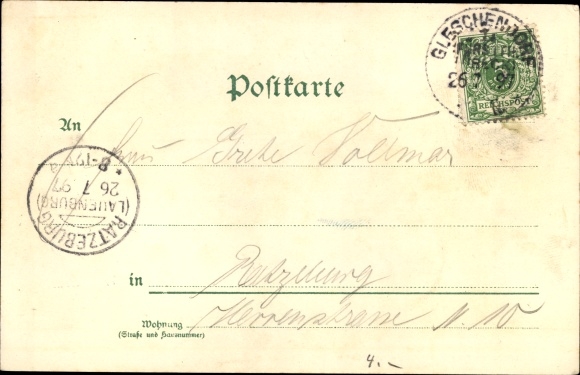 GLESCHENDORF
25 7 97
REICHSPOST
Postkarte
An Frau Grete Vollmar
8-12V
26 7 97
(LAUENBURG)
RATZEBURG
in Ratzeburg
Wohnung Herrenstrasse N. 10
(Straße und Hausnummer)
4.-